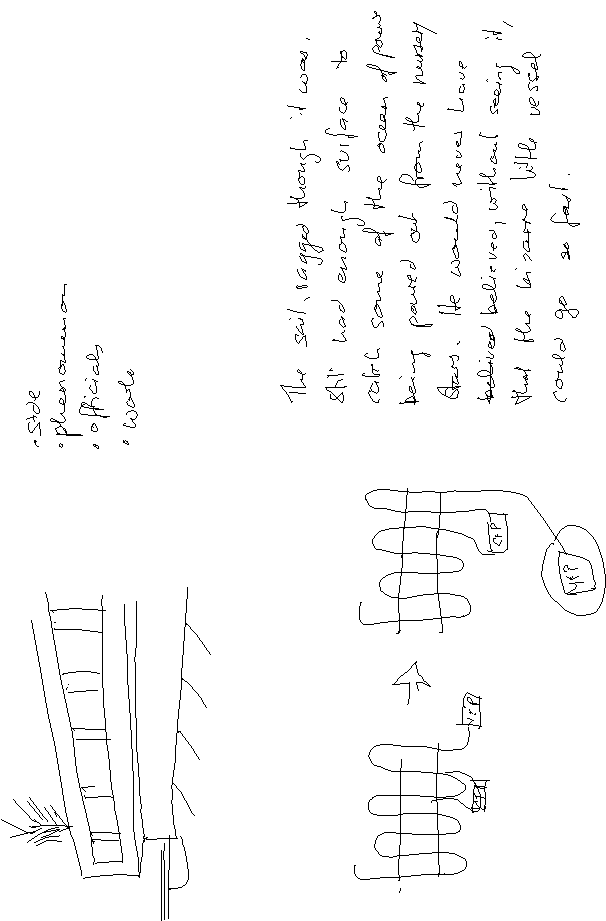 • side
• phenomenon
• officials
The sail, ragged though it was,
still had enough surface to
catch some of the ocean of power
being poured out from the nursery
stars. He would never have
believed believed, without seeing it,
that the bizarre little vessel
could go so fast.
YFP
CFP
YFP